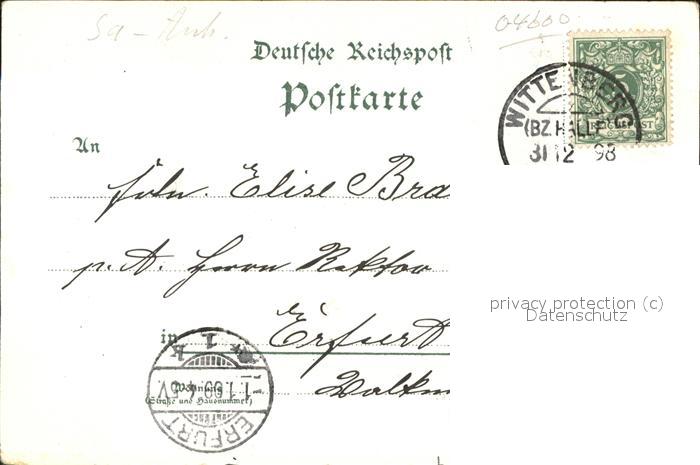 Sa-Anh.
04600
Deutsche Reichspost
Postkarte
REICHSPOST
WITTENBERG
(BZ. HALLE
31 12 98
An
Frln. Elise Bra
p. A. Herrn Rektor
privacy protection (c)
Datenschutz
in Erfurt
Wohnung
(Straße und Hausnummer)
ERFURT
1
k
1.1.99.6-5V.